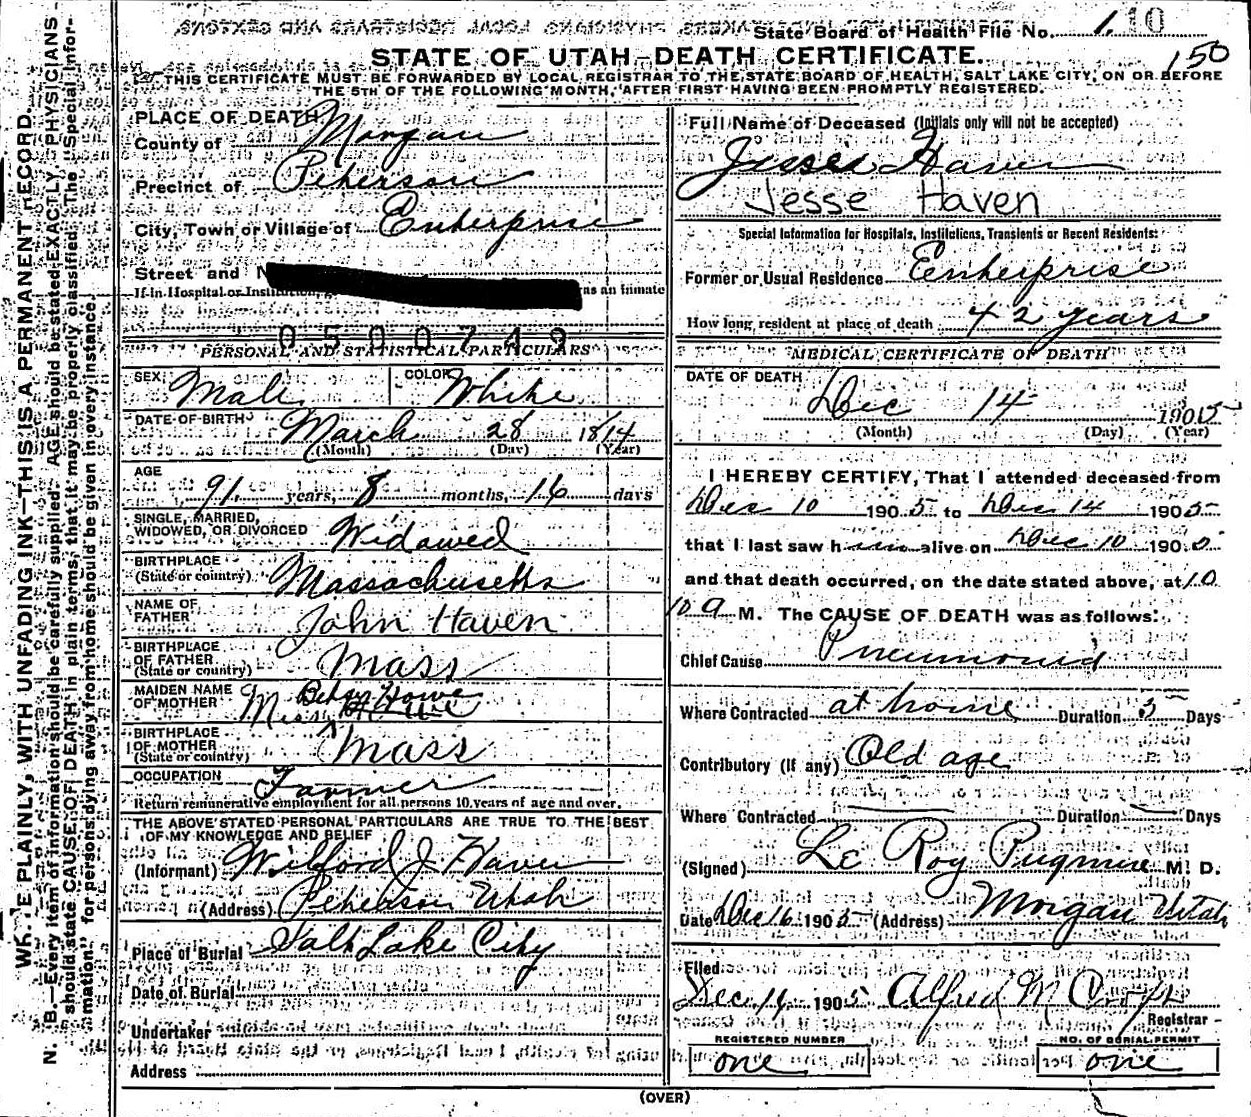 State Board of Health File No. 1. 10
150
STATE OF UTAH—DEATH CERTIFICATE.
THIS CERTIFICATE MUST BE FORWARDED BY LOCAL REGISTRAR TO THE STATE BOARD OF HEALTH, SALT LAKE CITY, ON OR BEFORE
THE 5TH OF THE FOLLOWING MONTH, AFTER FIRST HAVING BEEN PROMPTLY REGISTERED.
WRITE PLAINLY, WITH UNFADING INK—THIS IS A PERMANENT RECORD.
N. B.—Every item of information should be carefully supplied. AGE should be stated EXACTLY. PHYSICIANS
should state CAUSE OF DEATH in plain terms, that it may be properly classified. The "Special Infor-
mation" for persons dying away from home should be given in every instance.
PLACE OF DEATH
County of Morgan
Precinct of Peterson
City, Town or Village of Enterprise
Street and N
If in Hospital or Institution, as an inmate
0500749
PERSONAL AND STATISTICAL PARTICULARS
SEX Male COLOR White
DATE OF BIRTH March 28 1814
(Month) (Day) (Year)
AGE
91 years, 8 months, 16 days
SINGLE, MARRIED,
WIDOWED, OR DIVORCED Widowed
BIRTHPLACE
(State or country) Massachusetts
NAME OF
FATHER John Haven
BIRTHPLACE
OF FATHER
(State or country) Mass
MAIDEN NAME
OF MOTHER Miss Betsy Howe
BIRTHPLACE
OF MOTHER
(State or country) Mass
OCCUPATION Farmer
Return remunerative employment for all persons 10 years of age and over.
THE ABOVE STATED PERSONAL PARTICULARS ARE TRUE TO THE BEST
OF MY KNOWLEDGE AND BELIEF
(Informant) Wilford J Haven
(Address) Peterson Utah
Place of Burial Salt Lake City
Date of Burial
Undertaker
Address
Full Name of Deceased (Initials only will not be accepted)
Jesse Haven
Jesse Haven
Special Information for Hospitals, Institutions, Transients or Recent Residents:
Former or Usual Residence Eenterprise
How long resident at place of death 42 years
MEDICAL CERTIFICATE OF DEATH
DATE OF DEATH
Dec 14 1905
(Month) (Day) (Year)
I HEREBY CERTIFY, That I attended deceased from
Dec 10 1905 to Dec 14 1905
that I last saw him alive on Dec 10 1905
and that death occurred, on the date stated above, at 10
10 a M. The CAUSE OF DEATH was as follows:
Chief Cause Pneumonia
Where Contracted at home Duration 5 Days
Contributory (If any) Old age
Where Contracted Duration Days
(Signed) Le Roy Pugmire M. D.
Date Dec 16 1905 (Address) Morgan Utah
Filed
Dec 14 1905 Alfred M
Registrar
REGISTERED NUMBER
one
NO. OF BURIAL PERMIT
one
(OVER)